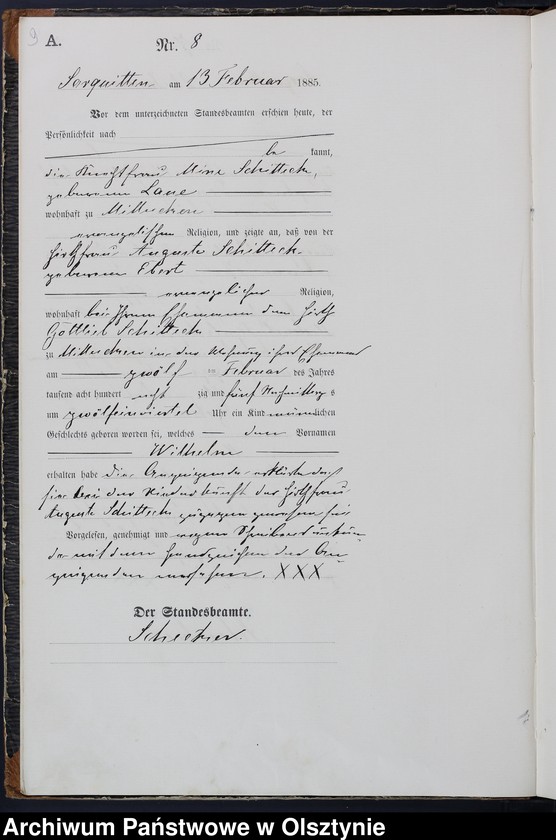 9
A.
Nr. 8
Sorquitten am 13 Februar 1885.
Vor dem unterzeichneten Standesbeamten erschien heute, der
Persönlichkeit nach
be kannt,
die Knechtfrau Mine Schittek,
geborene Laue
wohnhaft zu
evangelischer Religion, und zeigte an, daß von der
Hirthfrau Auguste Schittek
geborene Ebert
evangelischer Religion,
wohnhaft bei ihrem Ehemann dem Hirth
Gottlieb Schittek
zu in der Wohnung ihres Ehemannes
am zwölf ten Februar des Jahres
tausend acht hundert acht zig und fünf Nachmittag s
um zwölfeinviertel Uhr ein Kind männlichen
Geschlechts geboren worden sei, welches den Vornamen
Wilhelm
erhalten habe die Anzeigende erklärte daß
sie bei der Niederkunft der Hirthfrau
Auguste Schittek zugegen gewesen sei
Vorgelesen, genehmigt und wegen Schreibensunkun-
de mit dem Handzeichen der An-
zeigenden versehen. XXX
Der Standesbeamte.
Archiwum Państwowe w Olsztynie